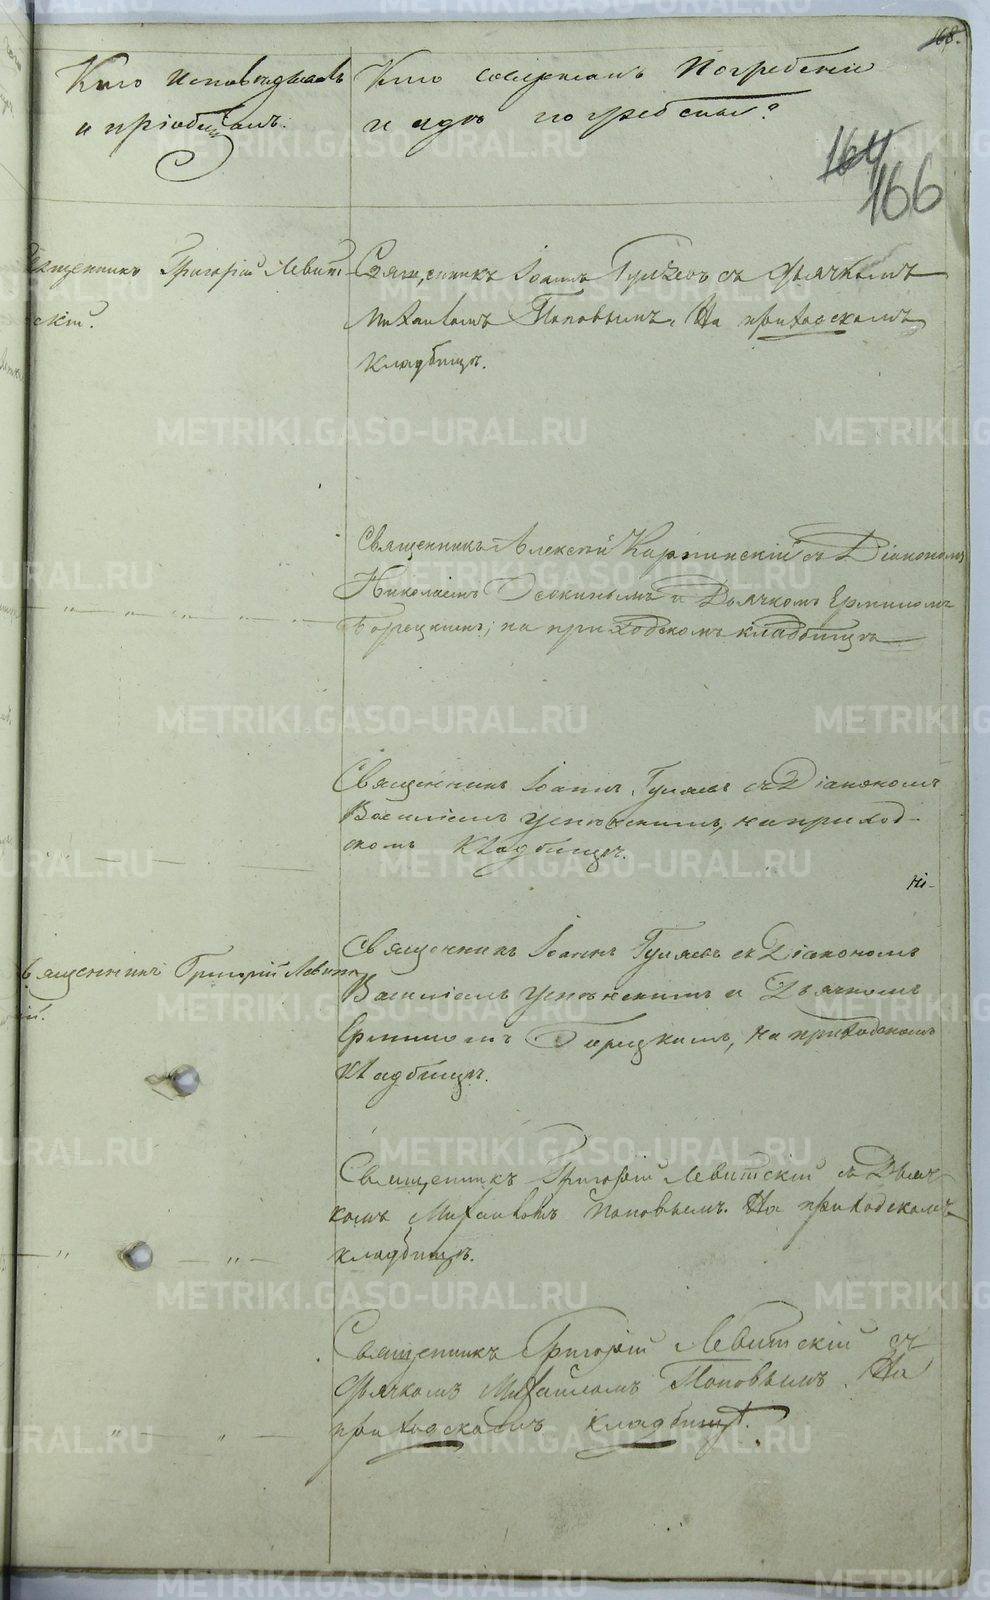 168.
Кто исповѣдывалъ
и пріобщалъ.
Кто совершалъ погребеніе
и гдѣ погребены?
164
166
Священникъ Григорій Левит-
скій.
Священникъ Іоаннъ Гуляевъ съ Дьячкомъ
Михаиломъ Поповымъ. На приходскомъ
кладбищѣ.
Священникъ Алексѣй Карпинскій съ Діакономъ
Николаемъ Осокинымъ и Дьячкомъ Ермиломъ
Борецкимъ; на приходскомъ кладбищѣ
Священникъ Іоаннъ Гуляевъ съ Діакономъ
Василіемъ Успенскимъ, на приход-
скомъ кладбищѣ.
Священникъ Григорій Левит
ій.
Священникъ Іоаннъ Гуляевъ съ Діакономъ
Василіемъ Успенскимъ и Дьячкомъ
Ермиломъ Борецкимъ, на приходскомъ
кладбищѣ.
Священникъ Григорій Левитскій съ Дьяч-
комъ Михаиломъ Поповымъ. На приходскомъ
кладбищѣ.
Священникъ Григорій Левитскій съ
Дьячкомъ Михаиломъ Поповымъ. На
приходскомъ кладбищѣ.
METRIKI.GASO-URAL.RU